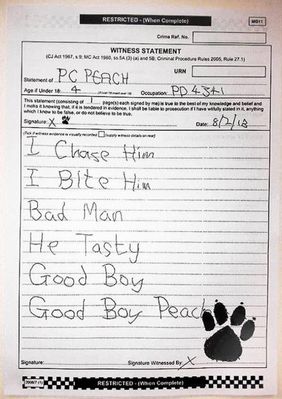 RESTRICTED - (When Complete)
MG11
Crime Ref. No.
WITNESS STATEMENT
(CJ Act 1967, s.9; MC Act 1980, ss.5A (3) (a) and 5B; Criminal Procedure Rules 2005, Rule 27.1)
URN
Statement of PC PEACH
Age if Under 18 4 Occupation: PD 4341
This statement (consisting of 1 page(s) each signed by me) is true to the best of my knowledge and belief and
I make it knowing that, if it is tendered in evidence, I shall be liable to prosecution if I have wilfully stated in it, anything
which I know to be false, or do not believe to be true.
Signature: X Date: 8/2/18
(Tick if witness evidence is visually recorded (supply witness details on rear)
I Chase Him
I Bite Him
Bad Man
He Tasty
Good Boy
Good Boy Peach
Signature: Signature Witnessed By: X
RESTRICTED - (When Complete)